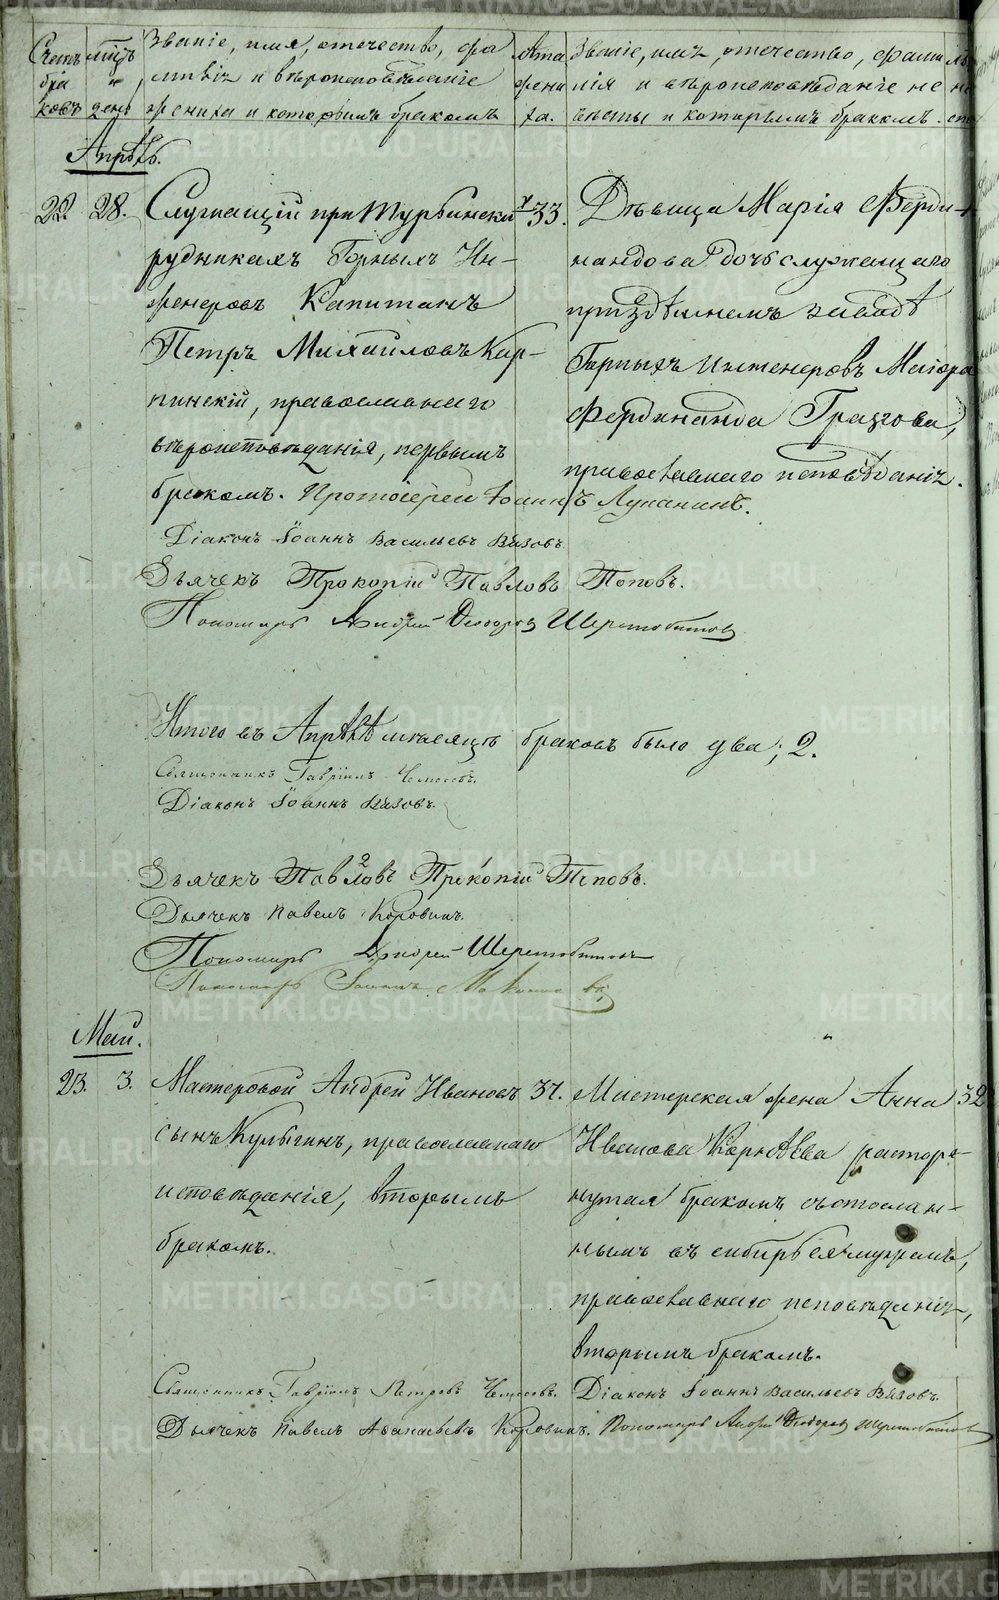 Счетъ бра ковъ
мцъ и день
Званіе, имя, отечество, фа
миліи и вѣроисповѣданіе
жениха и которымъ бракомъ
лѣта жени ха.
Званіе, имя, отечество, фами
лія и вѣроисповѣданіе не
вѣсты и которымъ бракомъ.
Апрѣль.
22. 28.
Служащій при Турьински
рудникахъ Горныхъ Ин-
женеровъ Капитанъ
Петръ Михайловъ Кар-
пинскій, православнаго
вѣроисповѣданія, первымъ
бракомъ.
33.
Дѣвица Марія Ферди-
нандова дочь служащаго
при здѣшнемъ заводѣ
Горныхъ Инженеровъ Маіора
Фердинанда Грасгова,
православнаго исповѣданія.
Протоіерей Іоаннъ Луканинъ.
Діаконъ Іоаннъ Васильевъ Вязовъ
Дьячекъ Прокопій Павловъ Поповъ.
Пономарь Андрей Ѳеодоров Шерстобитовъ
Итого въ Апрѣлѣ мѣсяцѣ браковъ было два; 2.
Священникъ Гавріилъ
Діаконъ Іоаннъ Вязовъ.
Дьячекъ Павловъ Прокопій Поповъ.
2
Дьячекъ Павелъ Коровинъ.
Пономарь Андрей Шерстобитовъ
Пономарь
Маій.
23. 3.
Мастеровой Андрей Ивановъ
сынъ Кулыгинъ, православнаго
исповѣданія, вторымъ
бракомъ.
37.
Мастерская жена Анна
Иванова Корнѣева растор-
нутая бракомъ съ сослан-
нымъ въ сибирь ея мужемъ,
православнаго исповѣданія,
вторымъ бракомъ.
32
Священникъ Гавріилъ Петровъ
Діаконъ Іоаннъ Васильевъ Вязовъ.
Дьячекъ Павелъ Аѳанасьевъ Коровинъ.
Пономарь Андрей Ѳеодоров Шерстобитовъ
METRIKI.GASO-URAL.RU